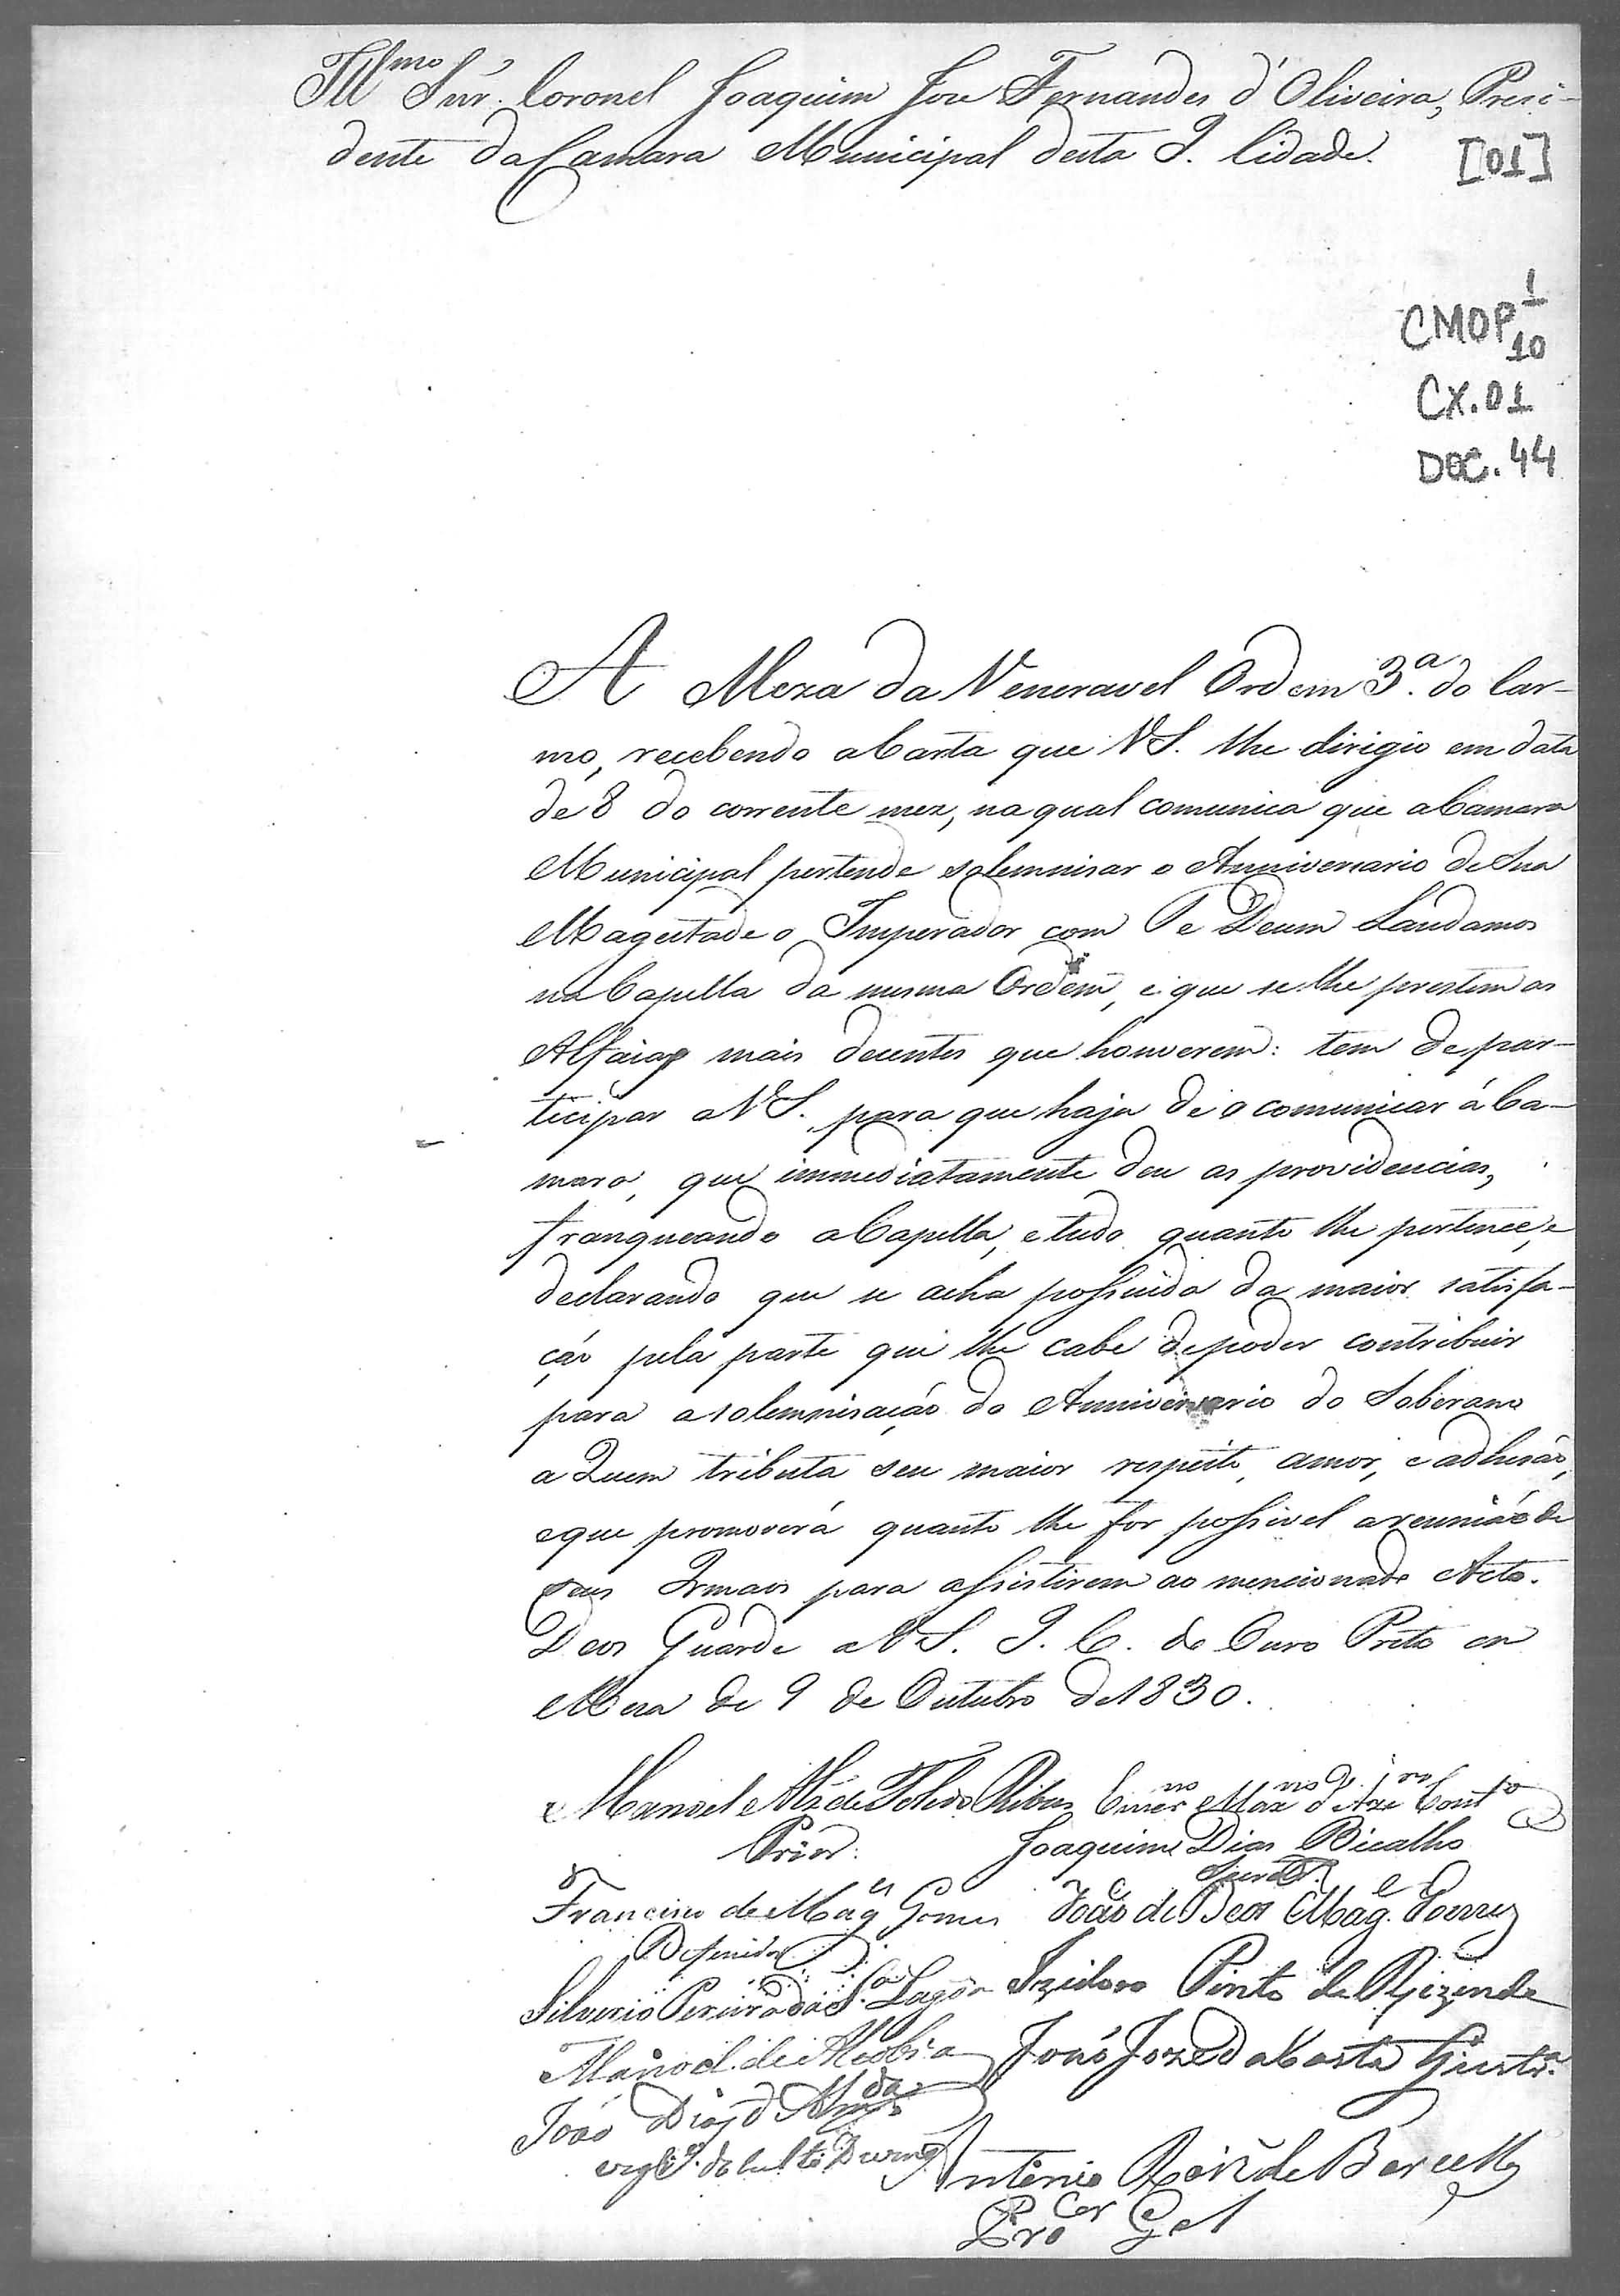 Ill.mo Snr. Coronel Joaquim Joze Fernandes d'Oliveira, Presi-
dente da Camara Municipal desta I. Cidade.
[01]
CMOP 1/10
CX.01
DOC.44
A Meza da Veneravel Ordem 3.a do Car-
mo, recebendo a Carta que VS. lhe dirigio em data
de 8 do corrente mez, na qual comunica que a Camara
Municipal pertende solemnisar o Anniversario de Sua
Magestade o Imperador com Te Deum Laudamos
na Capella da mesma Ordem, e que se lhe prestem as
Alfaias mais decentes que houverem: tem de par-
ticipar a VS. para que haja de o comunicar á Ca-
mara, que immediatamente deu as providencias,
franqueando a Capella, e tudo quanto lhe pertence, e
declarando que se acha possuida da maior satisfa-
ção pela parte que lhe cabe de poder contribuir
para a solemnisação do Anniversario do Soberano
a Quem tributa seu maior respeito, amor, e adhesão,
e que promoverá quanto lhe for possivel a reunião de
seus Irmaos para assistirem ao mencionado Acto.
Deos Guarde a VS. I. C. do Ouro Preto em
Meza de 9 de Outubro de 1830.
Manoel Alz de Toledo Ribas
Prior.
Joaquim Dias Bicalho
Secret.
Francisco de Mag.es Gomes João de Deos Mag.e Gomes
Definidor
Silverio Pereira da S.a Lagoa Izidoro Pinto de Rezende
Manoel de João Joze da Costa
João Dias d' Alm.da
Antonio Roiz de Barcellos
Pro.cor Gel